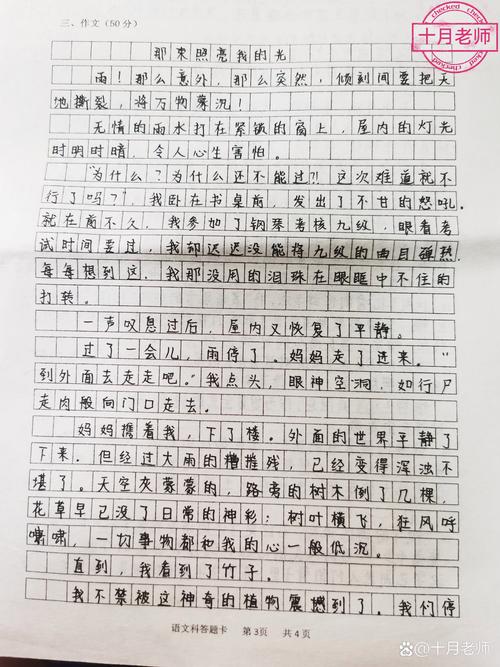 三、作文(50分)
十月老师
checked
checked
那束照亮我的光
雨！那么意外，那么突然，倾刻间要把天
地撕裂，将万物蒙沉！
无情的雨水打在紧锁的窗上，屋内的灯光
时明时暗，令人心生害怕。
“为什么？为什么还不能过?!这次难道就不
行了吗？”，我卧在书桌前，发出了不甘的怒吼。
就在前不久，我参加了钢琴考核九级，眼看考
试时间要过，我却迟迟没能将九级的曲目弹熟，
每每想到这，我那没用的泪珠在眼眶中不住的
打转。
一声叹息过后，屋内又恢复了平静。
过了一会儿，雨停了。妈妈走了进来。“
到外面去走走吧。”我点头，眼神空洞，如行尸
走肉般向门口走去。
妈妈携着我，下了楼。外面的世界平静了
下来。但经过大雨的摧残，已经变得浑浊不
堪了。天空灰蒙蒙的，路旁的树木倒了几棵，
花草早已没了日常的神彩；树叶横飞，狂风呼
啸，一切事物都和我的心一般低沉。
直到，我看到了竹子。
我不禁被这神奇的植物震撼到了。我们停
语文科答题卡 第3页 共4页
@十月老师